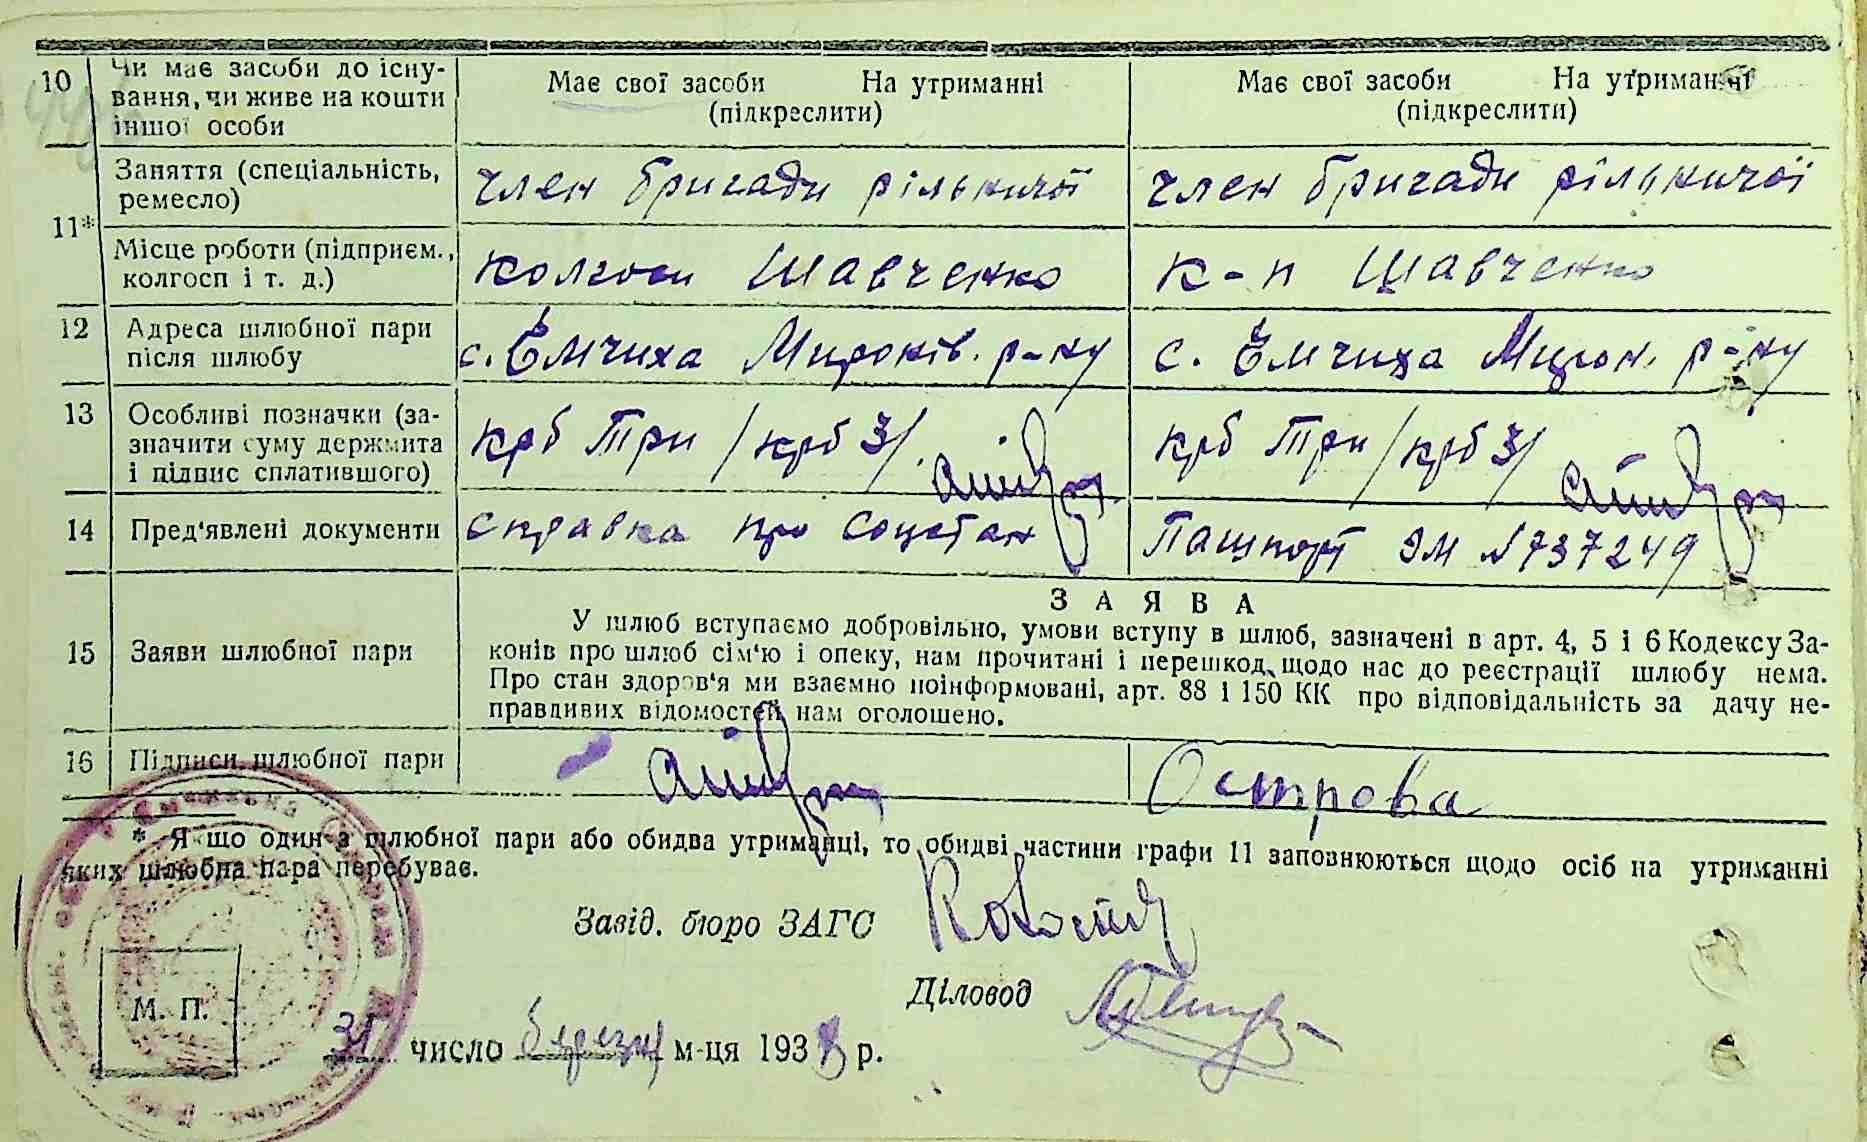 10 Чи має засоби до існу-
вання, чи живе на кошти
іншої особи
Має свої засоби На утриманні
(підкреслити)
Має свої засоби На утриманні
(підкреслити)
11*
Заняття (спеціальність,
ремесло)
член бригади рільничої
член бригади рільничої
Місце роботи (підприєм.,
колгосп і т. д.)
колгосп Шавченко
к-п Шавченко
12 Адреса шлюбної пари
після шлюбу
с. Емчиха Миронів. р-ну
с. Емчиха Мирон. р-ну
13 Особливі позначки (за-
значити суму держмита
і підпис сплатившого)
крб Три /крб 3/
крб Три /крб 3/
14 Пред'явлені документи
справка про соцстан
Пашпорт ЭМ №737249
15 Заяви шлюбної пари
ЗАЯВА
У шлюб вступаємо добровільно, умови вступу в шлюб, зазначені в арт. 4, 5 і 6 Кодексу За-
конів про шлюб сім'ю і опеку, нам прочитані і перешкод, щодо нас до реєстрації шлюбу нема.
Про стан здоров'я ми взаємно поінформовані, арт. 88 і 150 КК про відповідальність за дачу не-
правдивих відомостей нам оголошено.
16 Підписи шлюбної пари
Острова
* Якщо один з шлюбної пари або обидва утриманці, то обидві частини графи 11 заповнюються щодо осіб на утриманні
яких шлюбна пара перебуває.
Завід. бюро ЗАГС
Діловод
М. П.
31 число березня м-ця 1938 р.